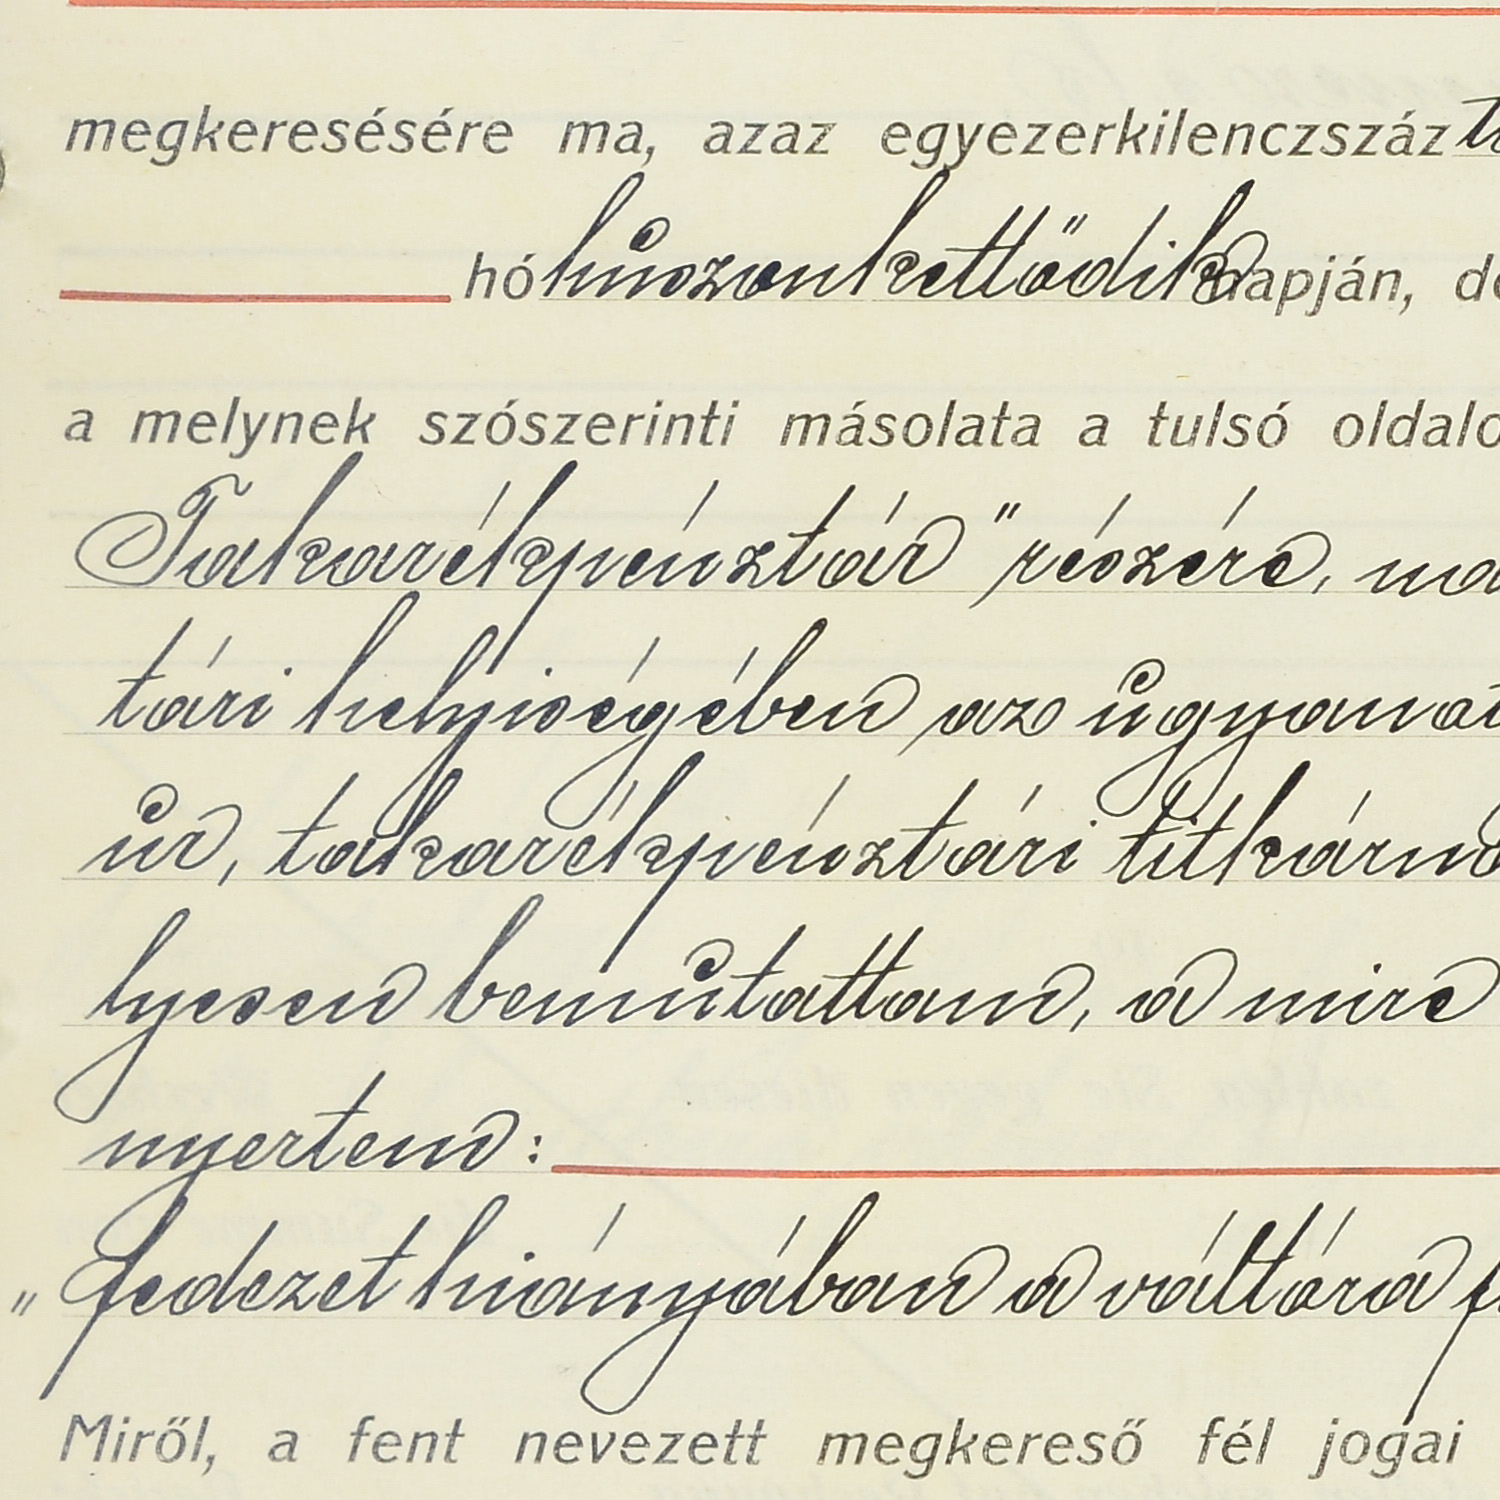 megkeresésére ma, azaz egyezerkilenczszáz
hó húszonkettődik napján,
a melynek szószerinti másolata a tulsó
Takarékpénztár" részére,
tári helyiségében az
úr, takarékpénztári
lyesen bemútattam, a mire
nyertem:
„fedezet hiányában a váltóra
Miről, a fent nevezett megkereső fél jogai